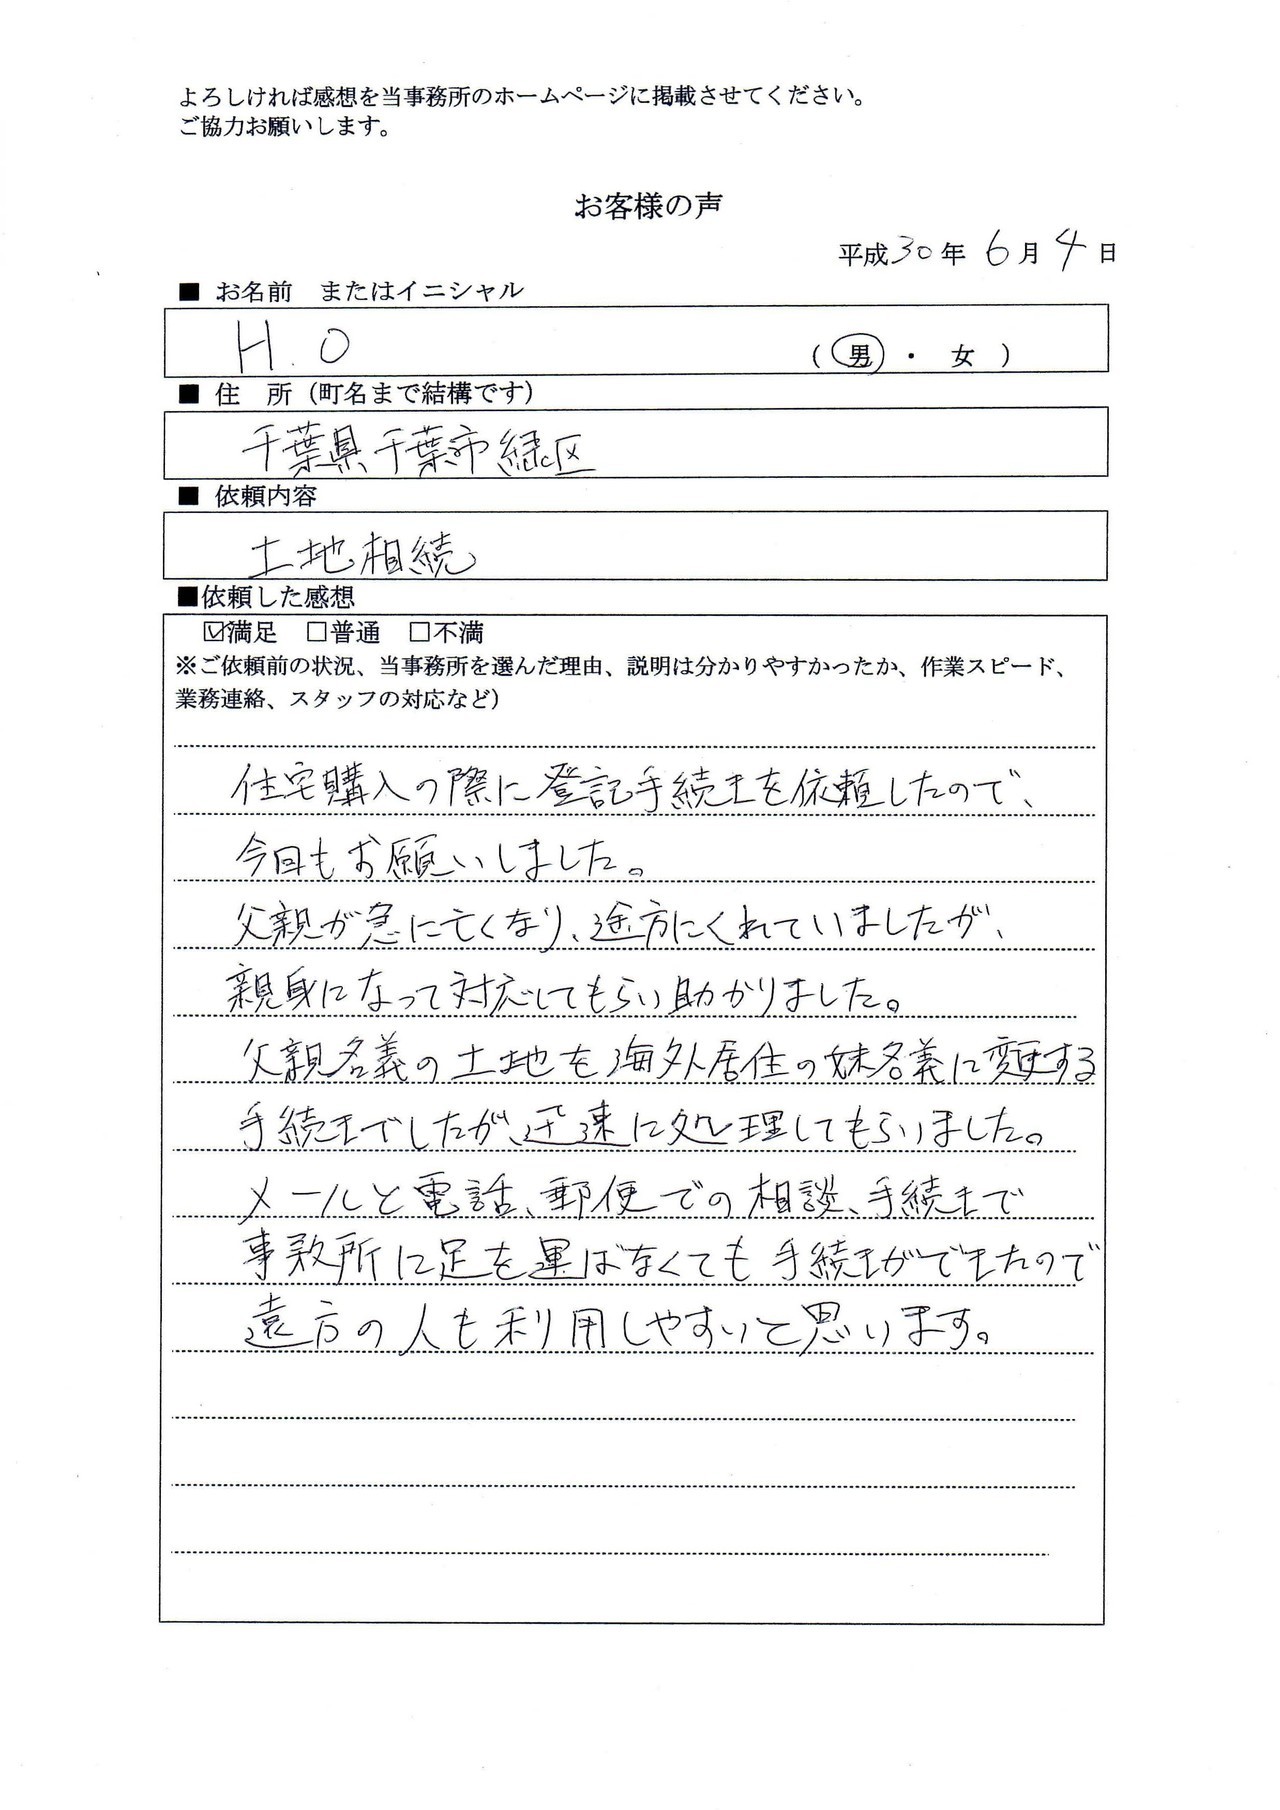 よろしければ感想を当事務所のホームページに掲載させてください。
ご協力お願いします。
お客様の声
平成30年 6月 4日
■ お名前　またはイニシャル
H.O （ 男 ・ 女 ）
■ 住　所（町名まで結構です）
千葉県千葉市緑区
■ 依頼内容
土地相続
■依頼した感想
☑満足　□普通　□不満
※ご依頼前の状況、当事務所を選んだ理由、説明は分かりやすかったか、作業スピード、
業務連絡、スタッフの対応など）
住宅購入の際に登記手続きを依頼したので、
今回もお願いしました。
父親が急に亡くなり、途方にくれていましたが、
親身になって対応してもらい助かりました。
父親名義の土地を海外居住の妹名義に変更する
手続きでしたが、迅速に処理してもらいました。
メールと電話、郵便での相談、手続きで
事務所に足を運ばなくても手続きができたので
遠方の人も利用しやすいと思います。